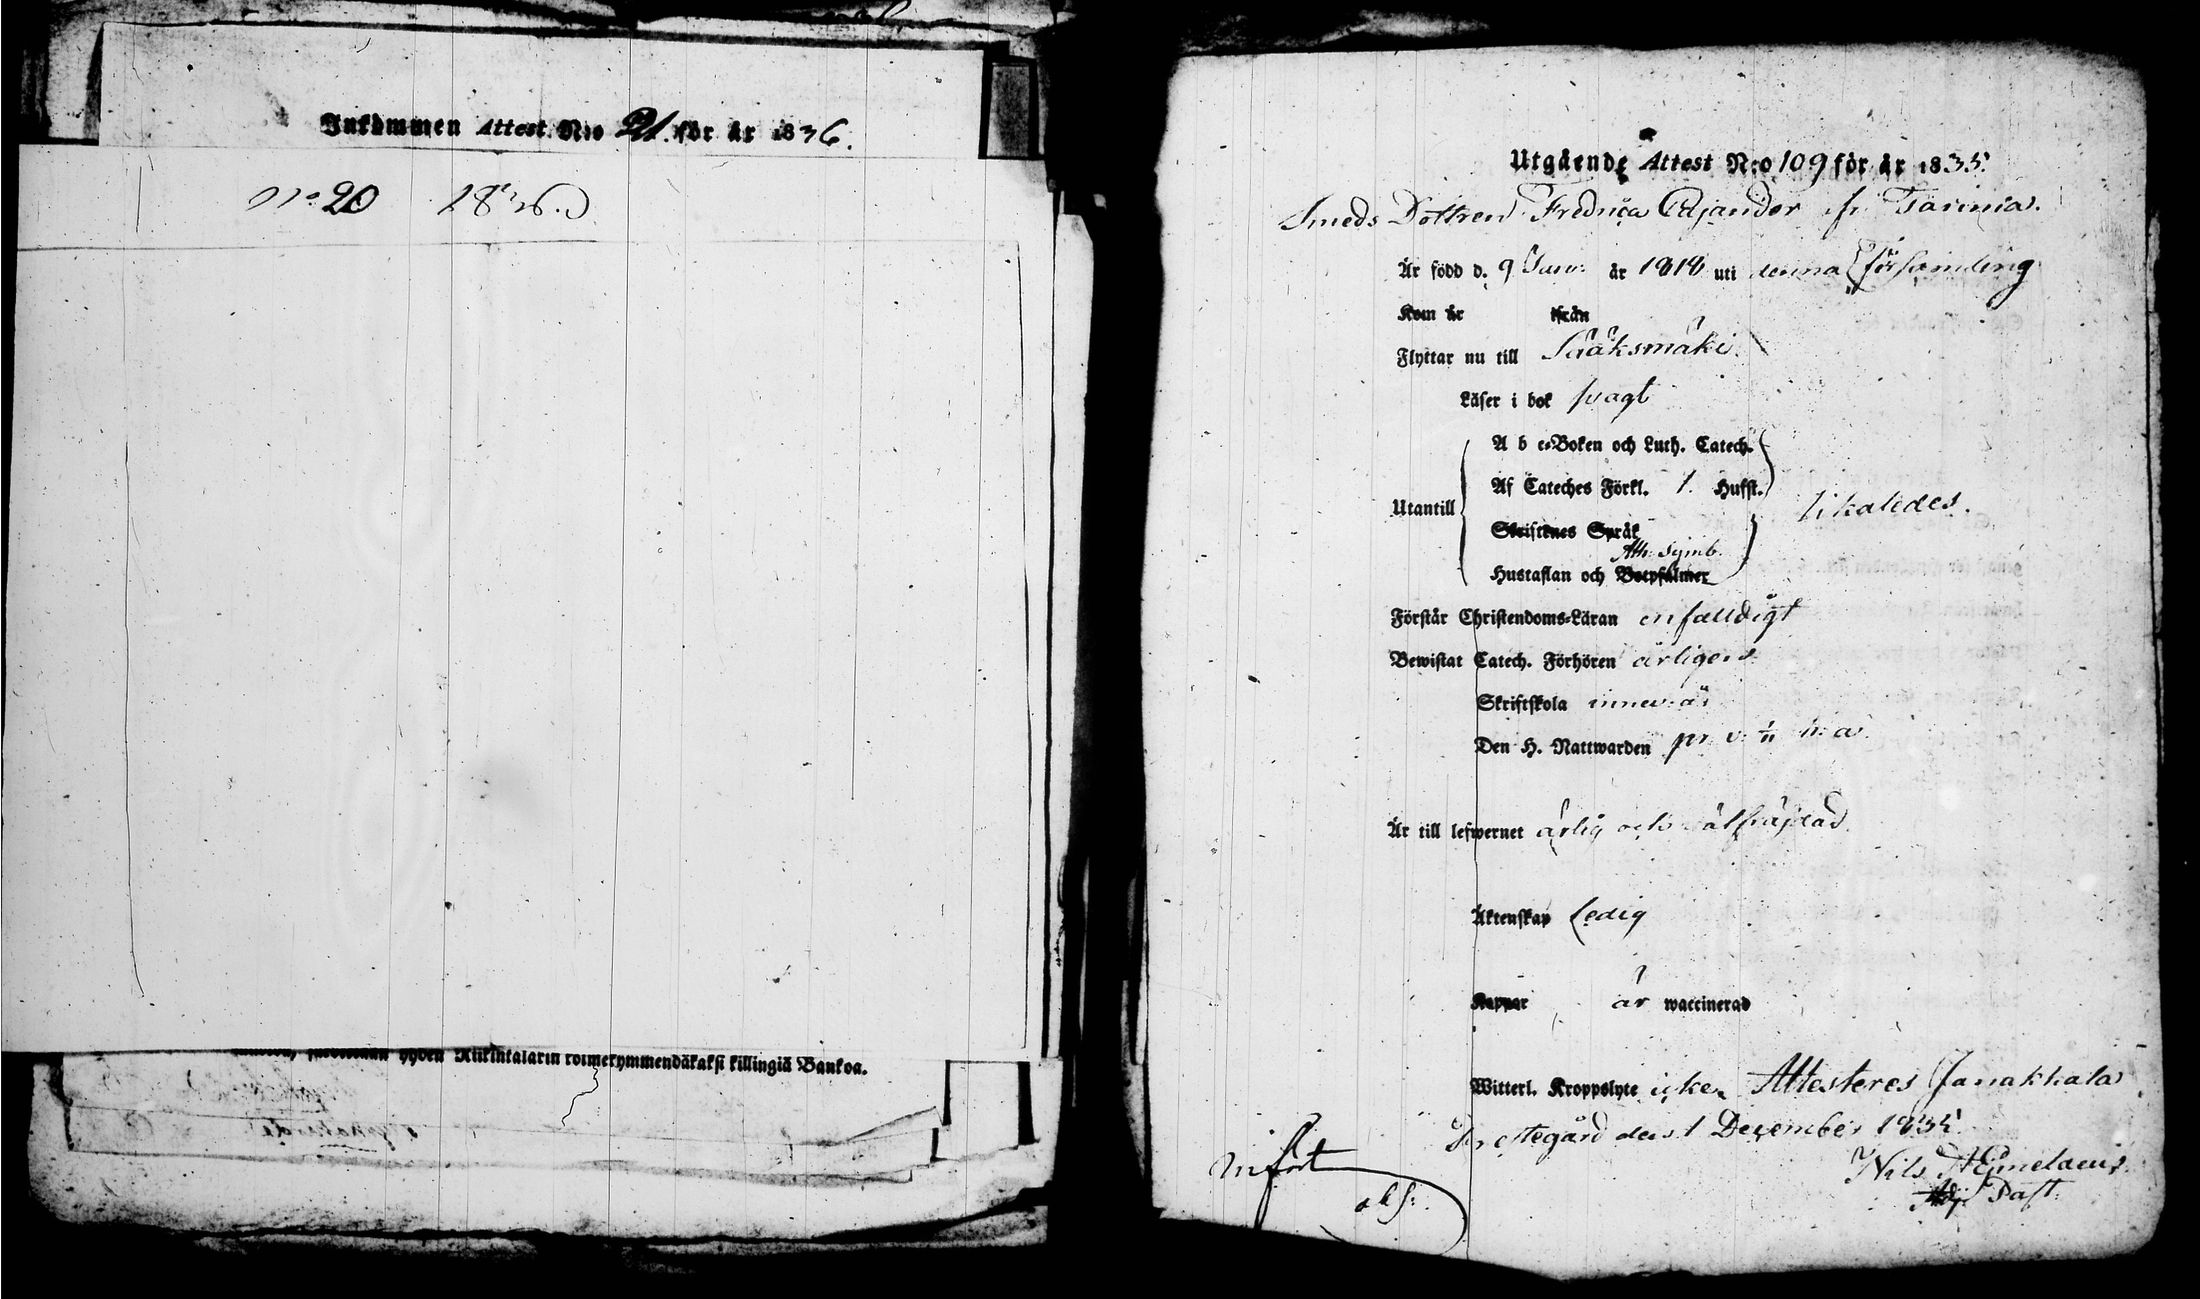 Inkommen Attest N:o 21. för år 1836.
No 20 1836.
Riikintalarin colmekymmendäkaksi killingiä Bankoa.
Utgående Attest N:o 109 för år 1835.
Smeds Dottren Fredrica Cajander fr. Tarinia.
Är född d. 9 Janu: år 1818 uti denna församling
Kom år ifrån
Flyttar nu till Sääksmäki.
Läser i bok svagt
A b c-Boken och Luth. Catech.
Af Cateches Förkl. 1. Hufst.
Utantill likaledes.
Skriftenes Språk
Ath. Symb.
Hustaflan och Botpsalmer
Förstår Christendoms-Läran enfalldigt
Bewistat Catech. Förhören årligen
Skriftskola
Den H. Nattwarden
Är till lefwernet ärlig och välfräjdad
Äktenskap Ledig
Koppor är waccinerad
Witterl. Kroppslyte icke. Attesteres Janakkala
Prestegård den 1 December 1835.
Nils
Adj. Past.
infört